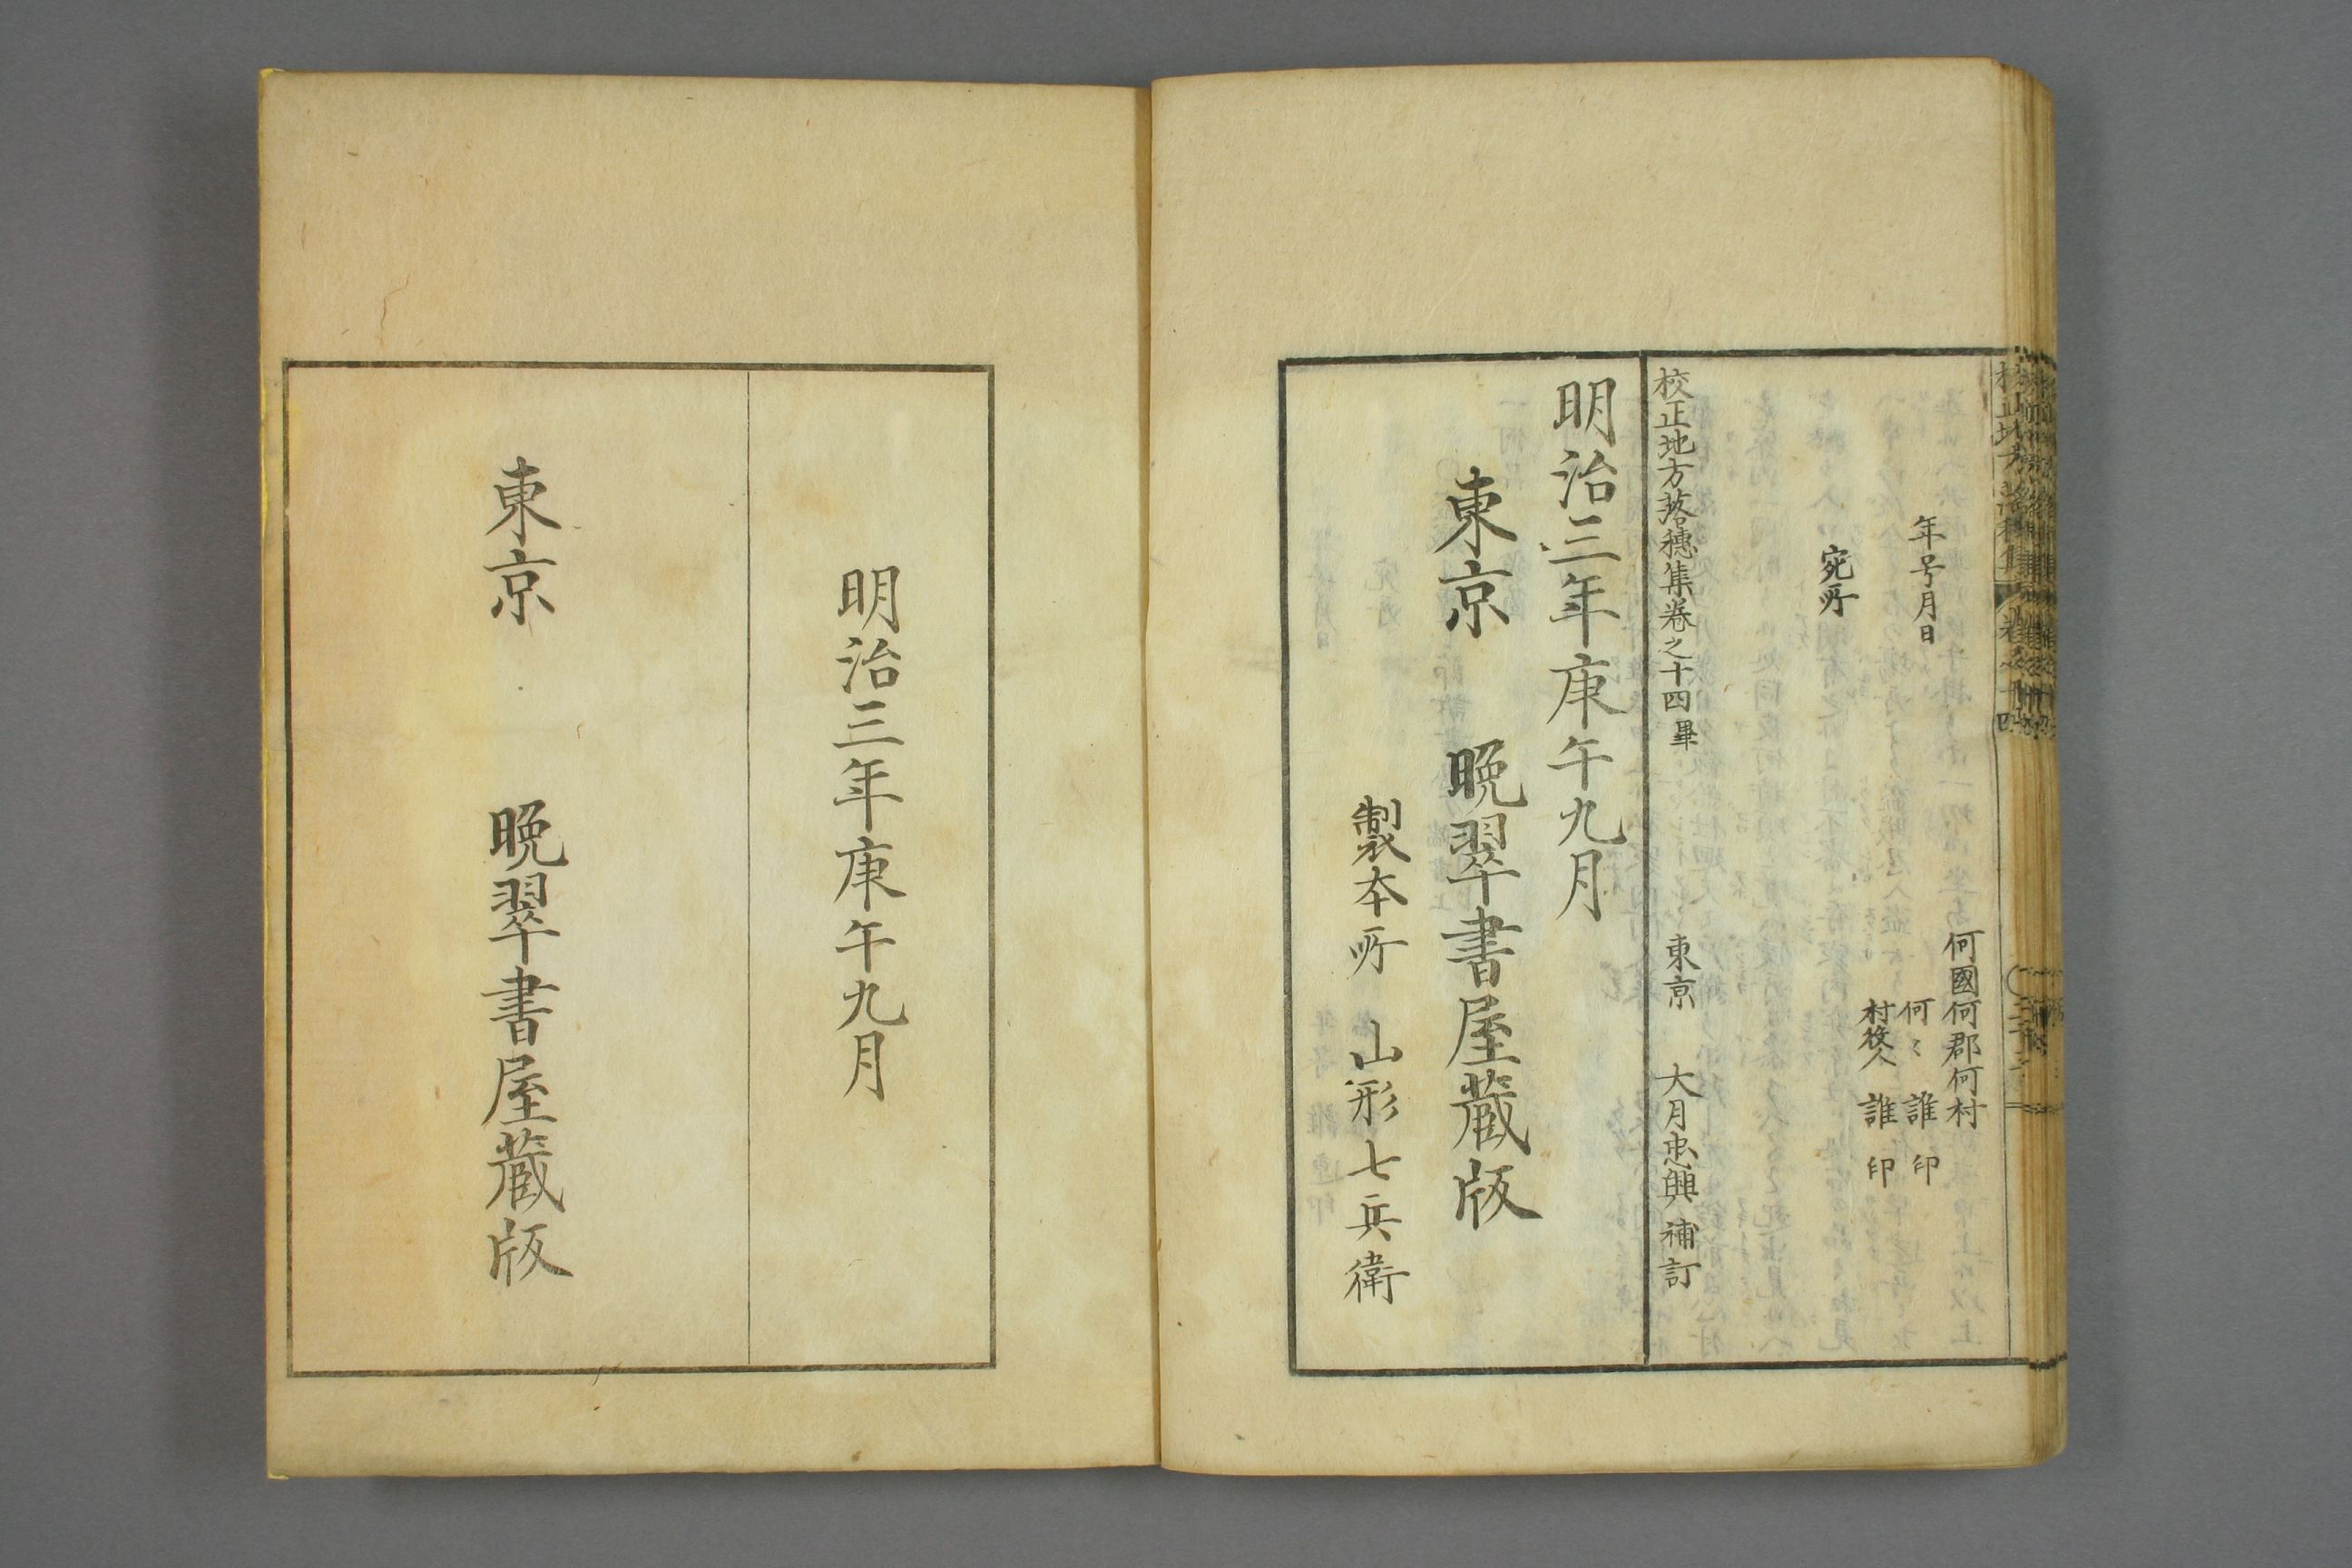 何國何郡何村
何〻 誰 印
年号月日
村役人 誰 印
宛所
校正地方落穂集巻之十四畢 東京 大月忠興補訂
明治三年庚午九月
東京 晩翠書屋蔵版
製本所 山形七兵衛
明治三年庚午九月
東京 晩翠書屋蔵版